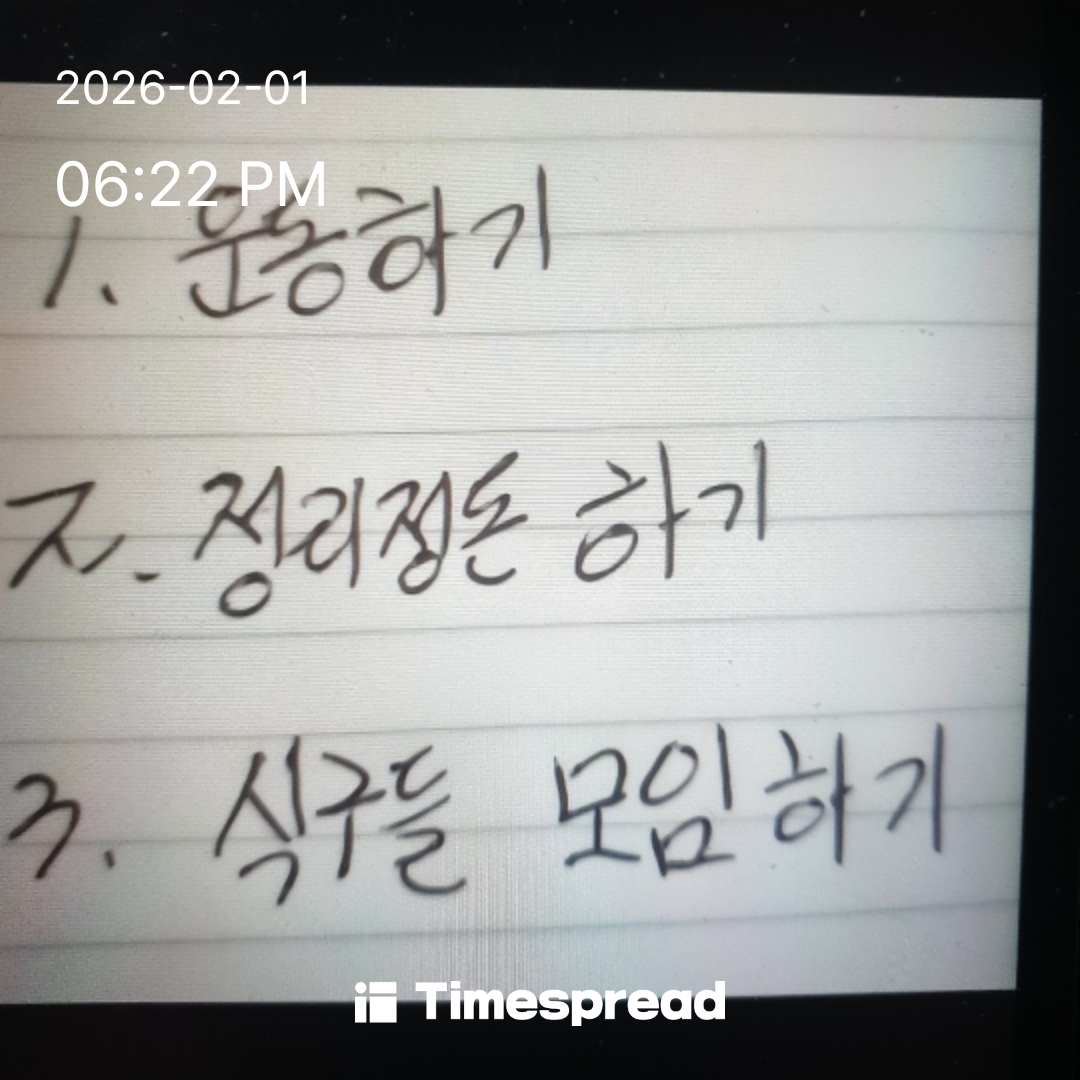 2026-02-01
06:22 PM
1. 운동하기
2. 정리정돈 하기
3. 식구들 모임하기
Timespread